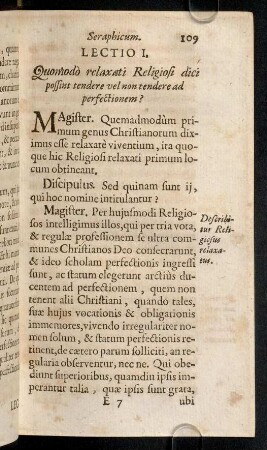 Seraphicum. 109
LECTIO I.
Quomodò relaxati Religiosi dici
possint tendere vel non tendere ad
perfectionem?
MAgister. Quemadmodùm pri-
mum genus Christianorum dix-
imus esse relaxatè viventium, ita quo-
que hic Religiosi relaxati primum lo-
cum obtineant.
Discipulus. Sed quinam sunt ij,
qui hoc nomine intitulantur?
Magister. Per hujusmodi Religio-
sos intelligimus illos, qui per tria vota,
& regulæ professionem se ultra com-
munes Christianos Deo consecrarunt,
& ideo scholam perfectionis ingressi
sunt, ac statum elegerunt arctiùs du-
centem ad perfectionem, quem non
tenent alii Christiani, quando tales,
suæ hujus vocationis & obligationis
immemores, vivendo irregulariter no-
men solum, & statum perfectionis re-
tinent, de cætero parum solliciti, an re-
gularia observentur, nec ne. Qui obe-
diunt superioribus, quamdiu ipsis im-
perantur talia, quæ ipsis sunt grata,
E 7 ubi
Describi-
tur Reli-
giosus
relaxa-
tus.